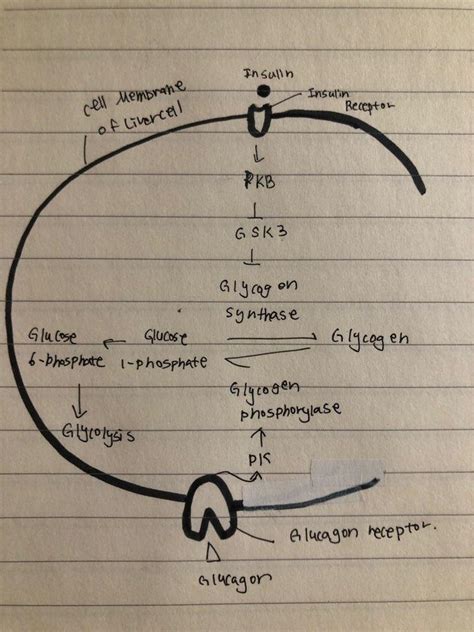 Insulin
Insulin
Receptor
Cell Membrane
of Liver cell
PKB
GSK3
Glycogen
synthase
Glucose
6-phosphate
Glucose
1-phosphate
Glycogen
Glycogen
phosphorylase
Glycolysis
PK
Glucagon receptor.
Glucagon